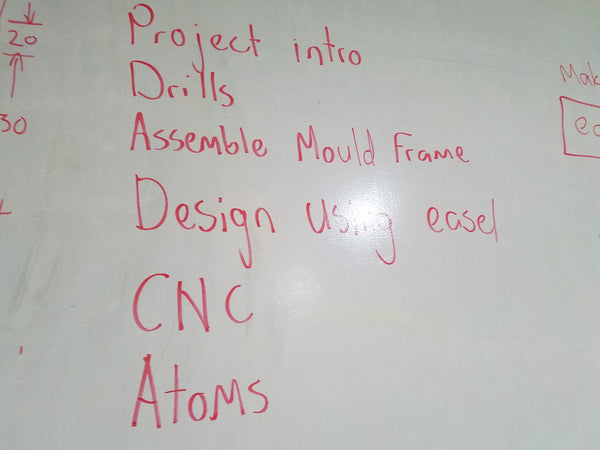 20
Project intro
Drills
30
Assemble Mould Frame
Design using easel
CNC
Atoms